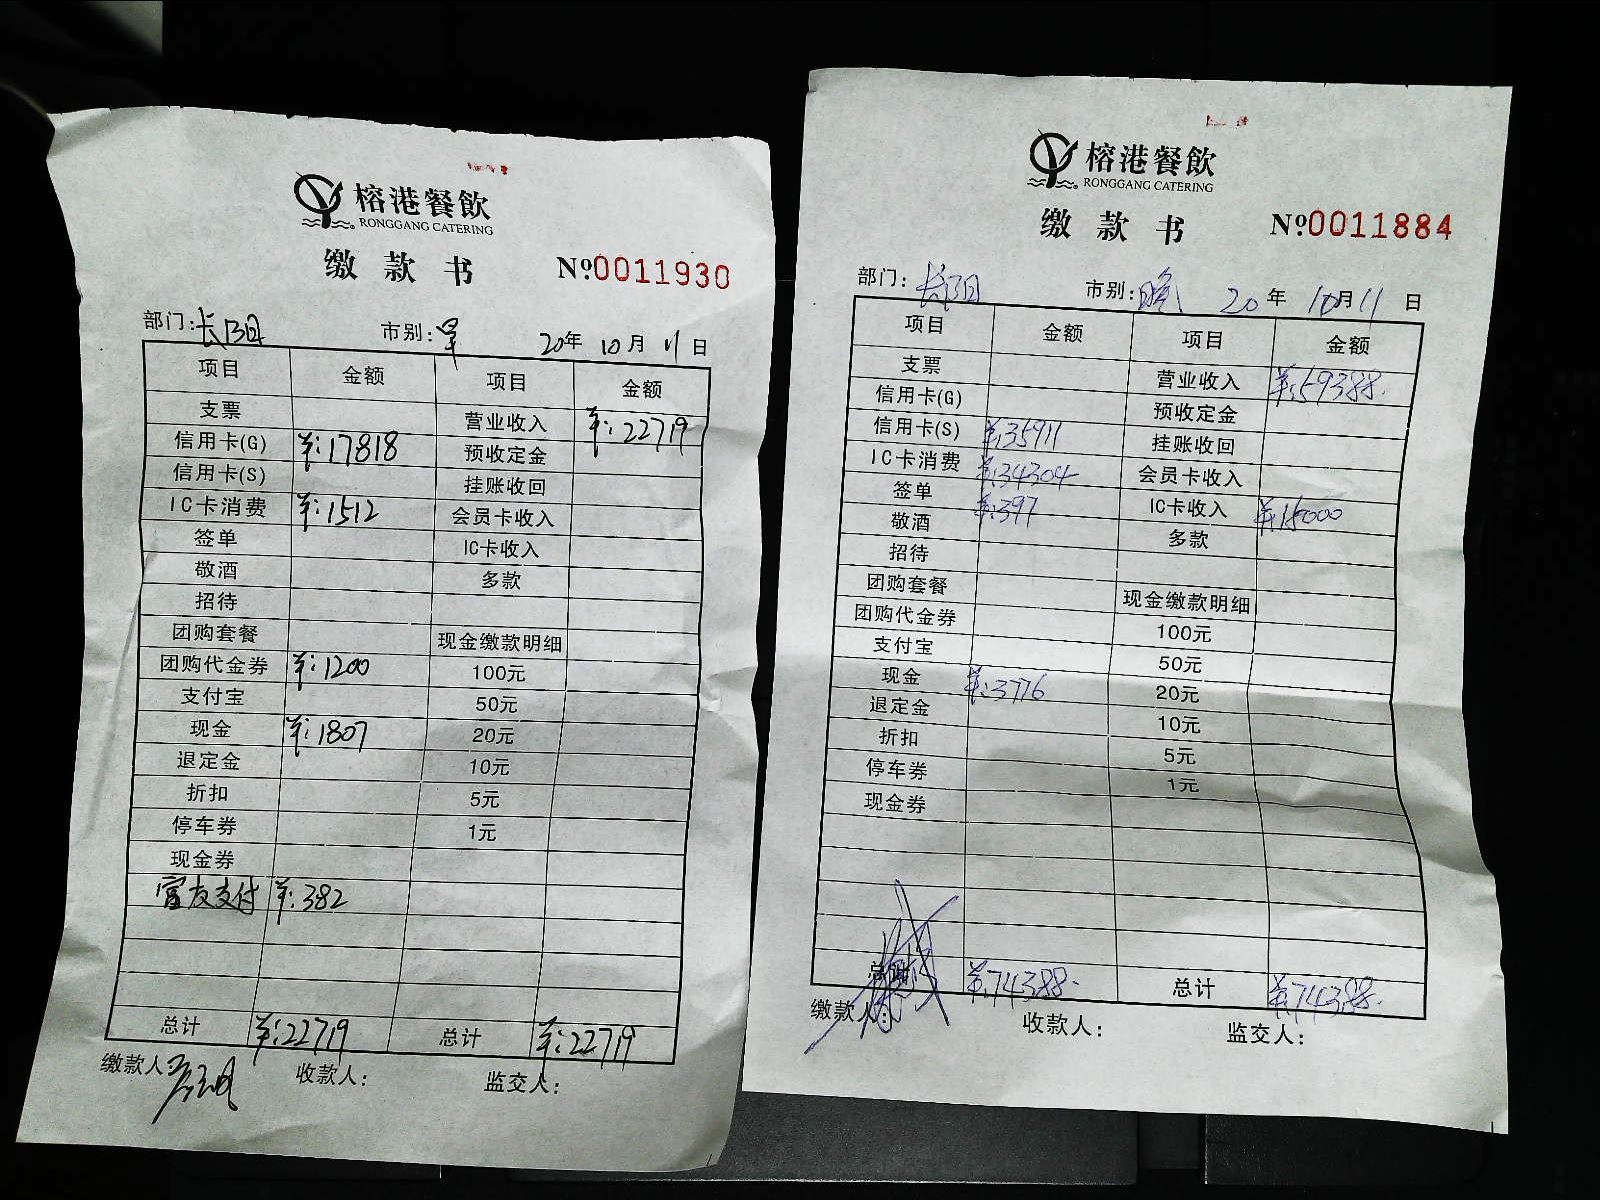 榕港餐飲
RONGGANG CATERING
缴款书 №0011930
部门:长阳 市别:早 20年10月11日
项目 金额 项目 金额
支票 营业收入 ¥:22719
信用卡(G) ¥:17818 预收定金
信用卡(S) 挂账收回
IC卡消费 ¥:1512 会员卡收入
签单 IC卡收入
敬酒 多款
招待
团购套餐 现金缴款明细
团购代金券 ¥:1200 100元
支付宝 50元
现金 ¥:1807 20元
退定金 10元
折扣 5元
停车券 1元
现金券
富友支付 ¥:382
总计 ¥:22719 总计 ¥:22719
缴款人: 收款人: 监交人:
榕港餐飲
RONGGANG CATERING
缴款书 №0011884
部门:长阳 市别:晚 20年10月11日
项目 金额 项目 金额
支票 营业收入 ¥:59388.
信用卡(G) 预收定金
信用卡(S) ¥:35911 挂账收回
IC卡消费 ¥:34304 会员卡收入
签单 ¥:397 IC卡收入 ¥:15000
敬酒 多款
招待
团购套餐 现金缴款明细
团购代金券 100元
支付宝 50元
现金 ¥:3776 20元
退定金 10元
折扣 5元
停车券 1元
现金券
总计 ¥:74388. 总计 ¥:74388.
缴款人: 收款人: 监交人: